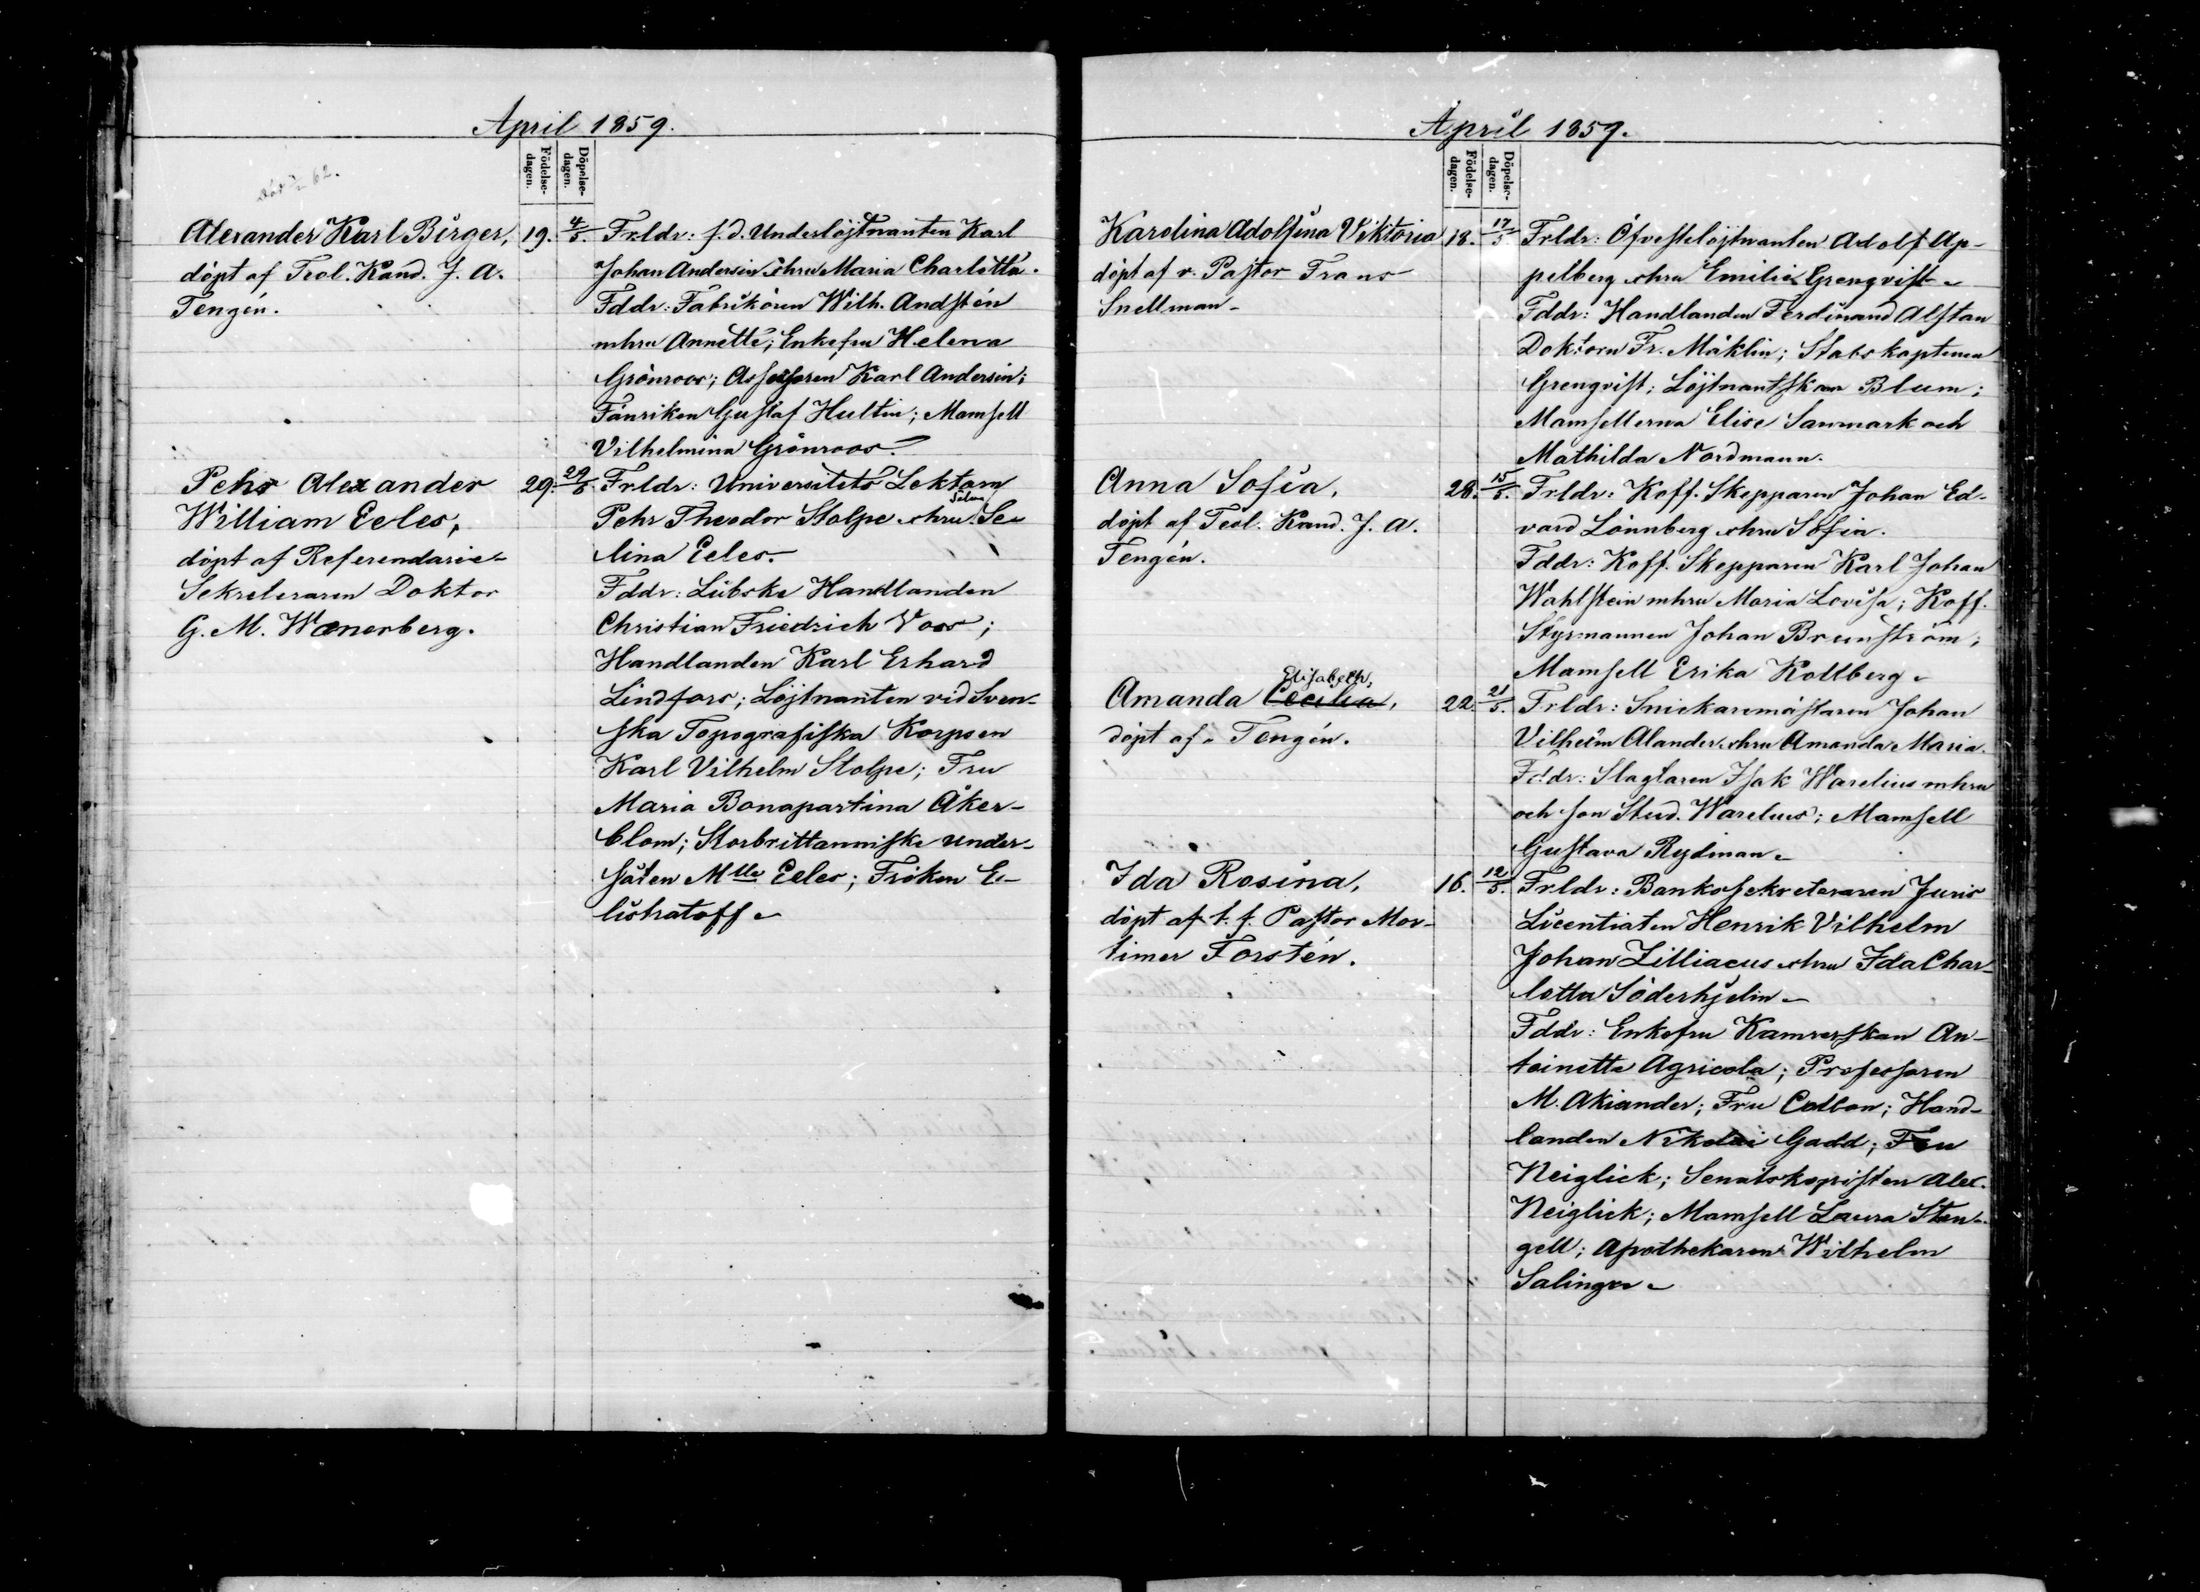 April 1859.
Födelse-
dagen.
Döpelse-
dagen.
62.
Alexander Karl Birger,
döpt af Teol. Kand. J. A.
Tengén.
19. 4/5.
Frldr: f.d. Underlöjtnanten Karl
Johan Andersin o. hru Maria Charlotta.
Fddr: Fabrikören Wilh. Andstén
m hru Annette; Enkefru Helena
Grönroos; Assessoren Karl Andersin;
Fänriken Gustaf Hultin; Mamsell
Vilhelmina Grönroos.
Pehr Alexander
William Eeles,
döpt af Referendarie-
Sekreteraren Doktor
G. M. Wænerberg.
29. 29/5.
Frldr: Universitets Lektorn
Pehr Theodor Stolpe o. hru Se-
lina Eeles.
Fddr: Lübske Handlanden
Christian Friedrich Voos;
Handlanden Karl Erhard
Lindfors; Löjtnanten vid Sven-
ska Topografiska Korpsen
Karl Vilhelm Stolpe; Fru
Maria Bonapartina Åker-
blom; Storbrittanniske under-
såten Mlle Eeles; Fröken E-
listratoff
April 1859.
Födelse-
dagen.
Döpelse-
dagen.
Karolina Adolfina Viktoria
döpt af v. Pastor Frans
Snellman
18. 17/5
Frldr: Öfverstelöjtnanten Adolf Ap-
pelberg o. hru Emilie Grenqvist
Fddr: Handlanden Ferdinand Alftan
Doktorn Fr. Mäklin; Stabskaptenen
Grenqvist; Löjtnantskan Blum;
Mamsellerna Elise Sanmark och
Mathilda Nordmann.
Anna Sofia,
döpt af Teol. Kand. J. A.
Tengén.
28. 15/5.
Frldr: Koff. Skepparen Johan Ed-
vard Lönnberg o. hru Sofia.
Fddr: Koff. Skepparen Karl Johan
Wahlstein m hru Maria Lovisa; Koff.
Styrmannen Johan Brunström;
Mamsell Erika Kollberg
Elisabeth,
Amanda Cecilia,
döpt af Tengén.
22. 21/5.
Frldr: Snickaremästaren Johan
Vilhelm Alander o. hru Amanda Maria.
Fddr: Slagtaren Isak Warelius m hru
och son Stud. Warelius; Mamsell
Gustava Rydman
Ida Rosina,
döpt af t. f. Pastor Mor-
timer Forstén.
16. 12/5.
Frldr: Bankosekreteraren Juris
Licentiaten Henrik Vilhelm
Johan Zilliacus o. hru Ida Char-
lotta Söderhjelm
Fddr: Enkefru Kamrerskan An-
toinette Agricola; Professoren
M. Akiander; Fru Calbon; Hand-
landen Nikolai Gadd; Fru
Neiglick; Senatskopisten Alex.
Neiglick; Mamsell Laura Sten-
gell; Apothekaren Wilhelm
Salinger